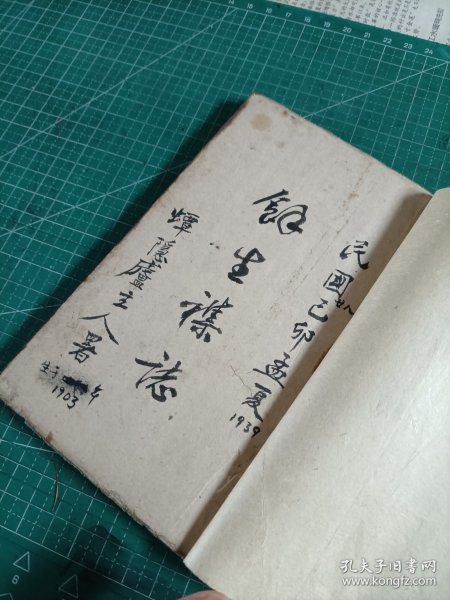 民國廿八己卯孟夏
1939
餘生襍誌
煇隱廬主人署
生于
年
1903
孔夫子旧书网
www.kongfz.com